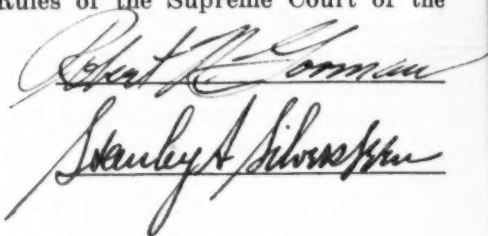 Rules of the Supreme Court of the
Robert N. Gorman
Stanley A. Silversteen